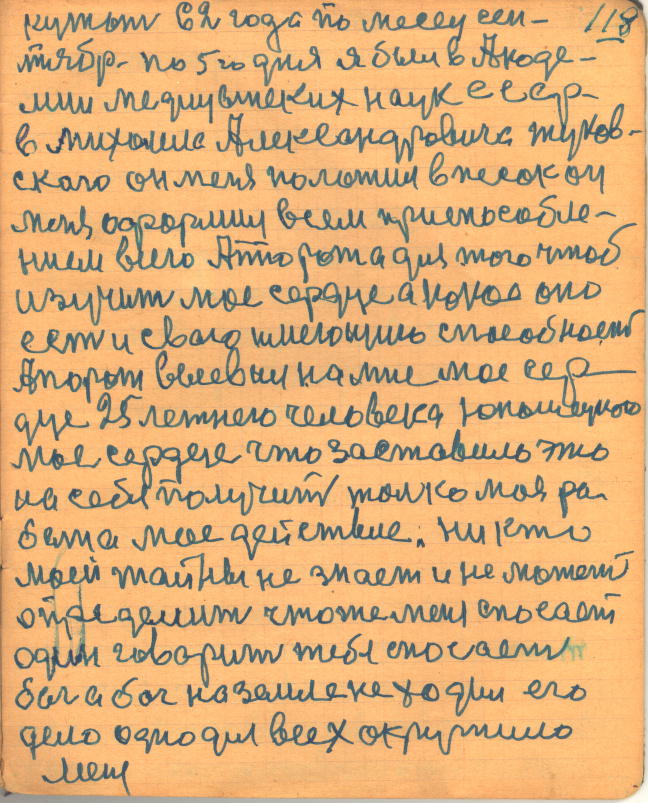 118
62 года по месец сен-
тябр- по 5го дня я был в Акаде-
мии медицынских наук СССР-
в михаила Александровича жуков-
ского он меня положил в песок он
меня оформил всем приспособле-
нием всего Аппарата для того чтоб
изучит мое сердце а какое оно
ест и свою имеющию способност
Апарат выевил на мне мое сер-
дце 25 летнего человека юношецкого
мое сердце что заставило это
на себя получит толко моя ра-
бота мое действие. никто
моей тайны не знает и не может
определит что же меня спасает
один говорит тебя спасает
бог а бог на земле не ходил его
дело одно для всех окружило
меня